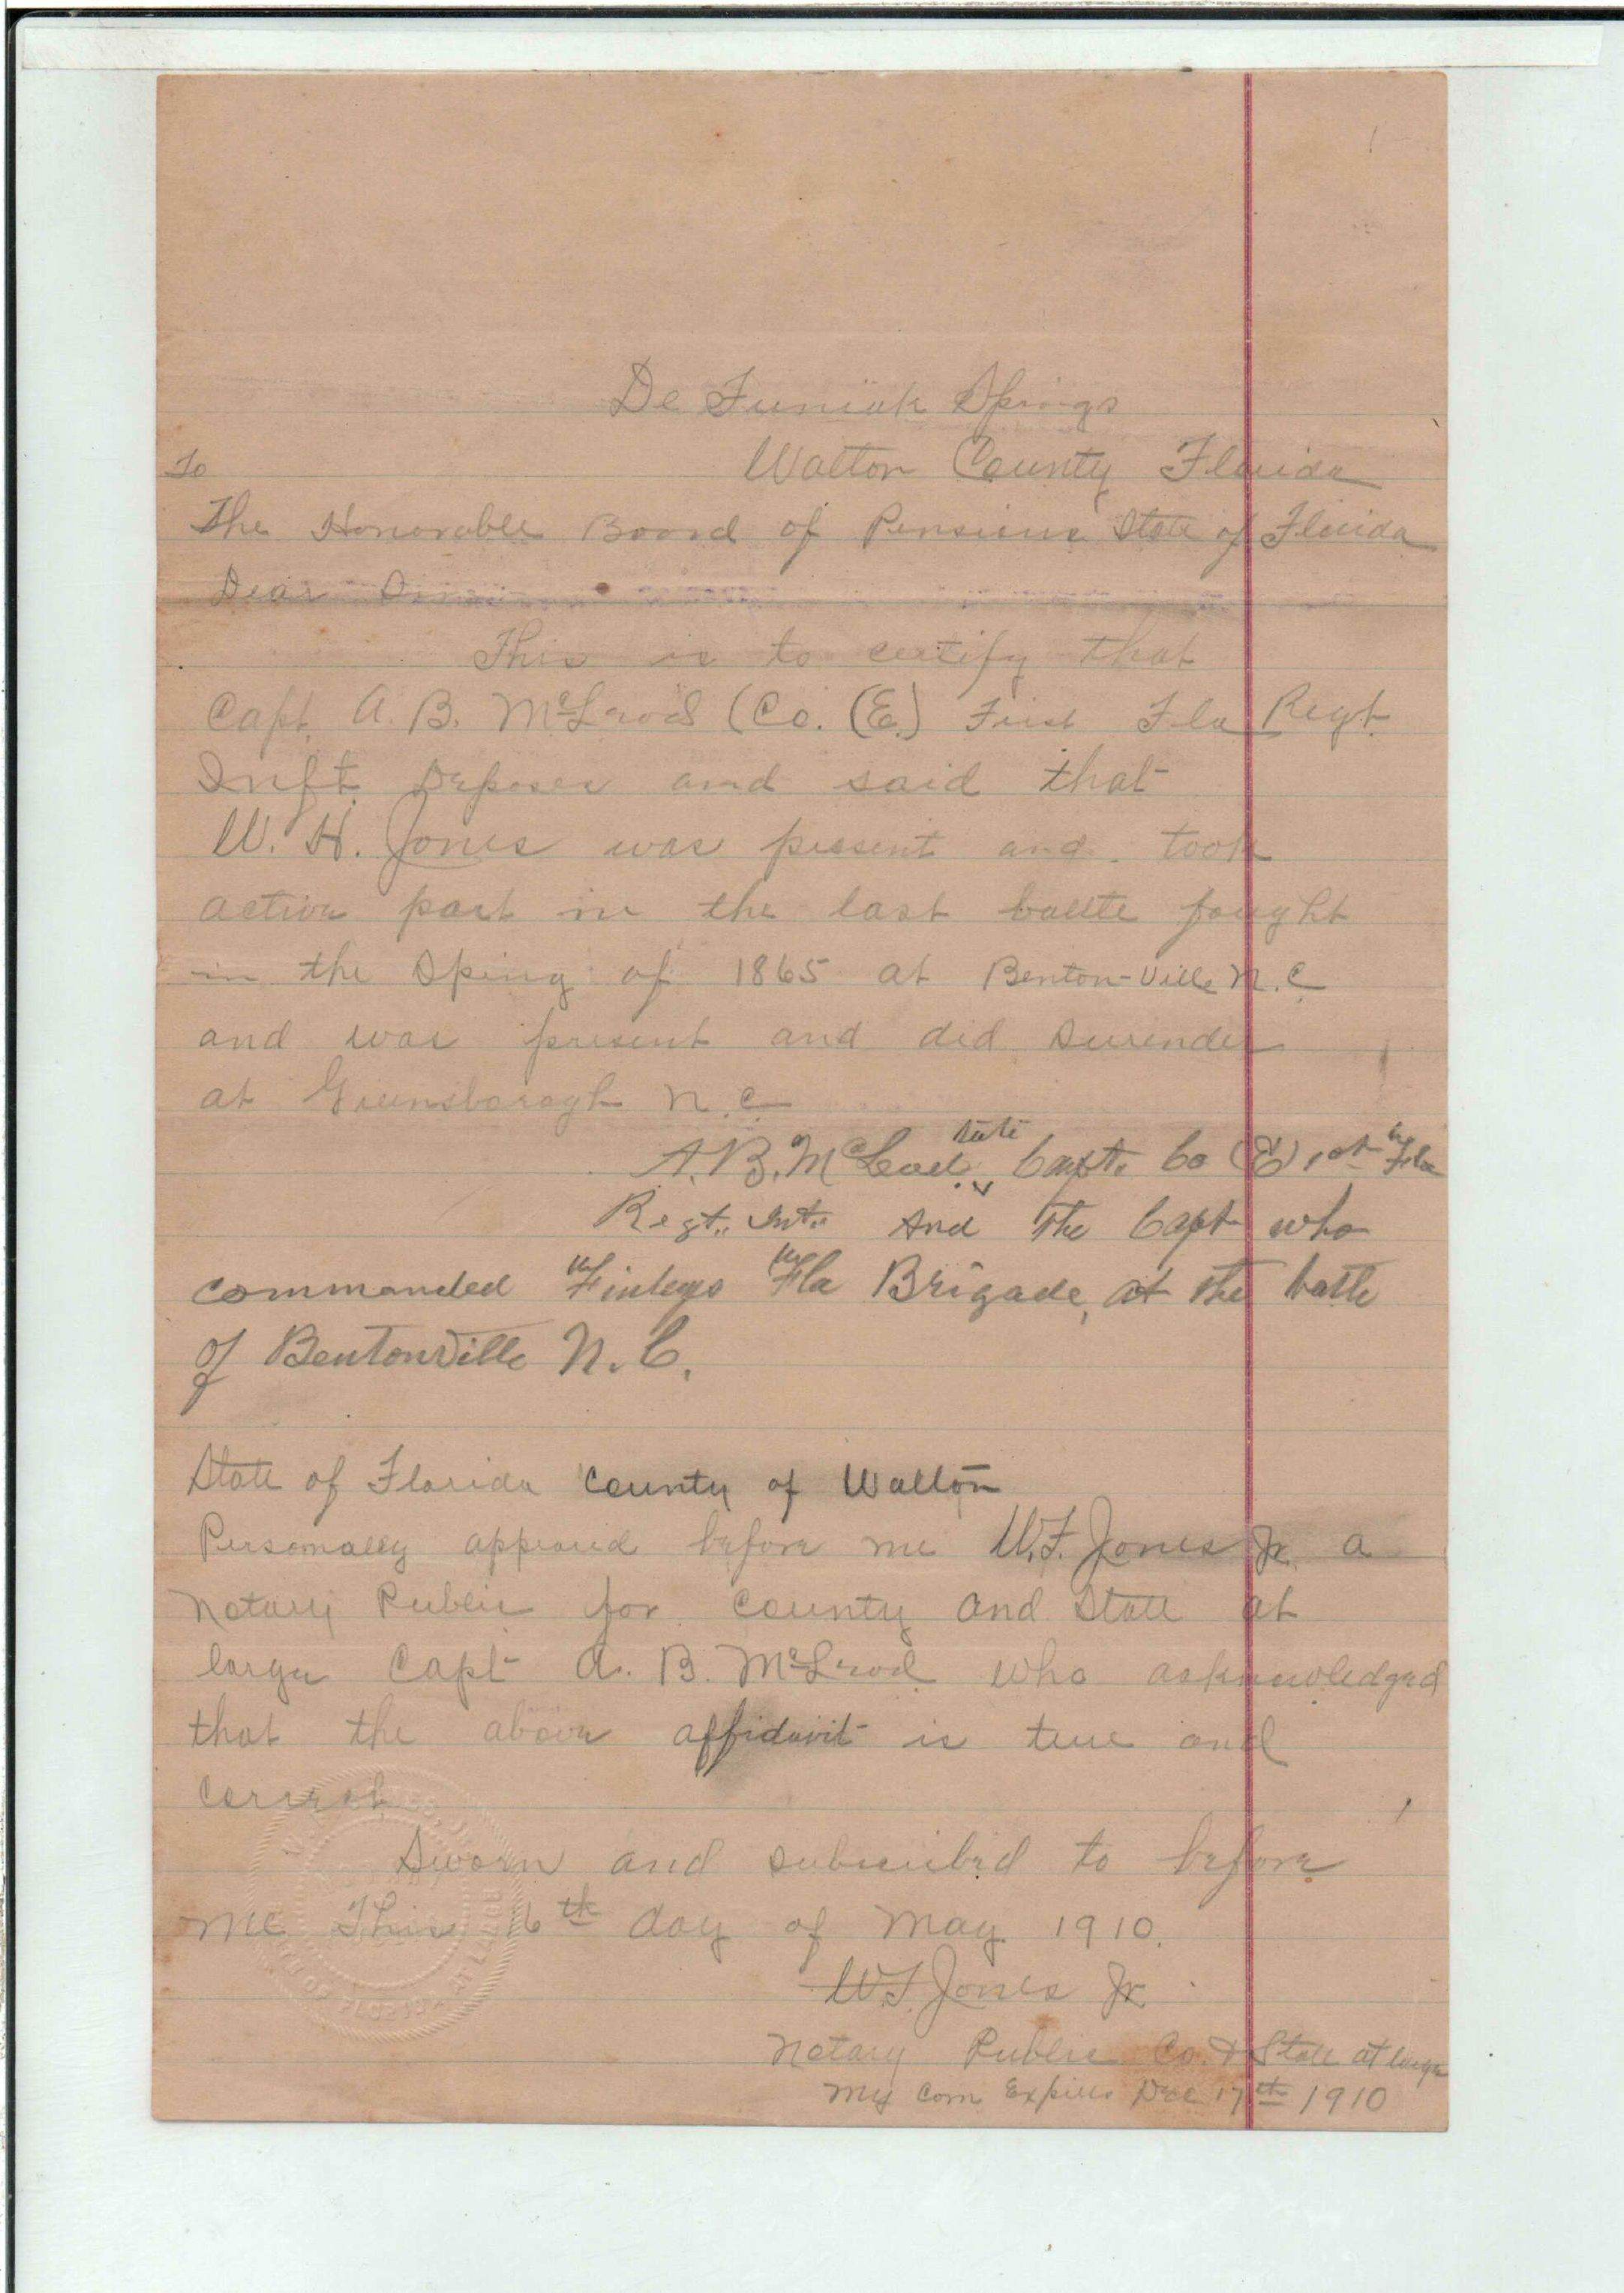 De Funiak Springs
To Walton County Florida
The Honorable Board of Pensions State of Florida
Dear Sirs
This is to certify that
Capt. A. B. McLeod (Co. (E.) First Fla Regt.
Inft. Deposes and said that
W. H. Jones was pessent and took
active part in the last battle fought
in the Sping of 1865 at Benton-Ville N.C
and was present and did surender
at Greensborogh N.C.
A. B. McLeod, late Capt. Co (E) 1st Fla
Regt., Int., And the Capt who
commanded Finleys Fla Brigade, at the battle
of Bentonville N.C.
State of Florida County of Walton
Personally appeared before me W.F. Jones Jr. a
Notary Public for County and State at
large Capt A. B. McLeod who acknowledged
that the above affidavit is true and
Correct
Sworn and subscribed to before
me This 16th day of May 1910.
W.F. Jones Jr.
Notary Public Co. & State at large
My Com Expires Dec 17th 1910